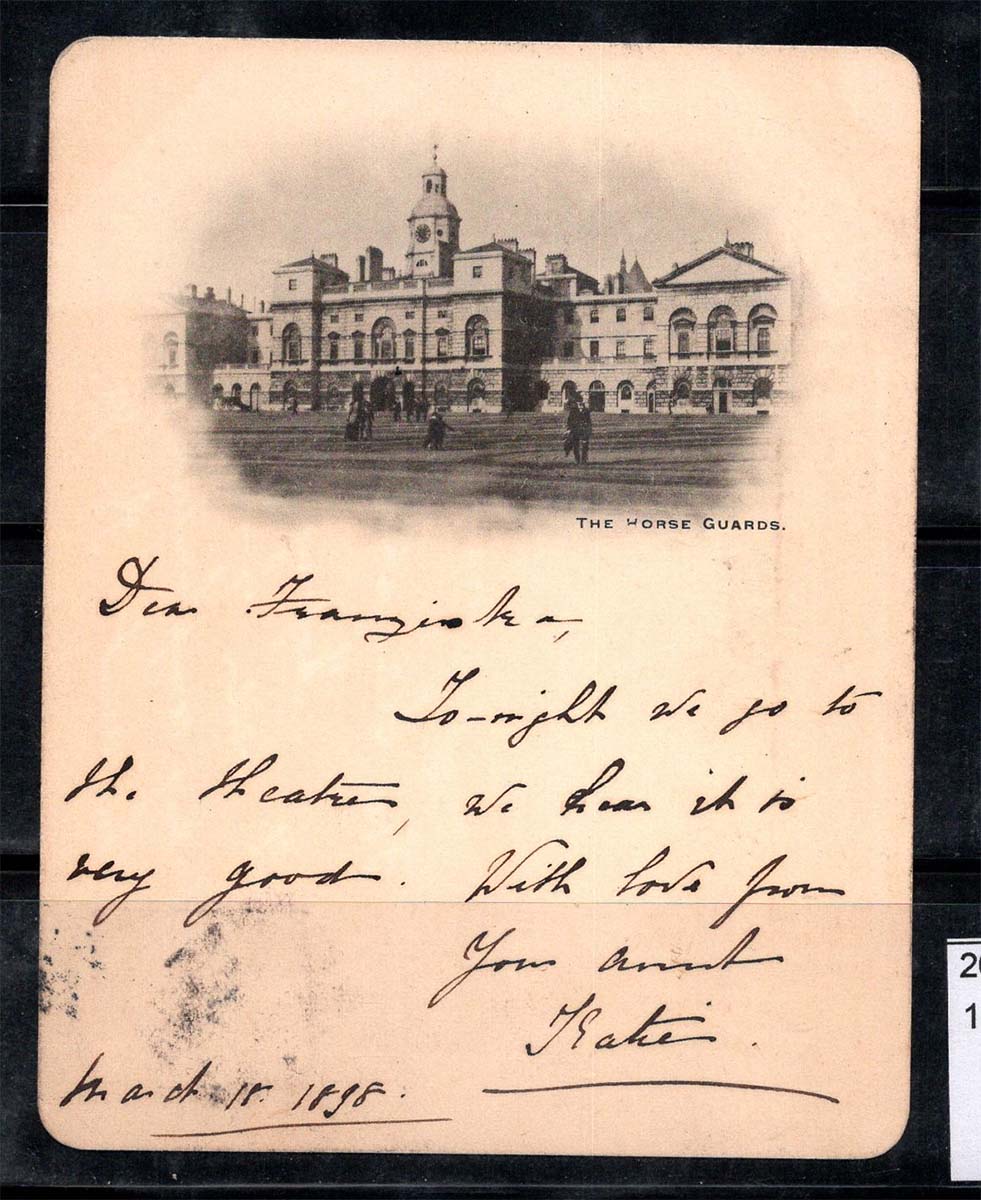 THE HORSE GUARDS.
Dear Franziska,
To-night we go to
the theatre, we hear it is
very good. With love from
Your aunt
Katie.
March 18. 1898.